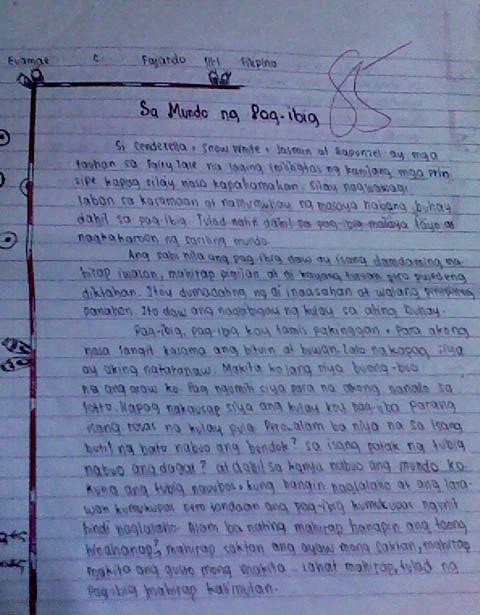 Euamae C. Fajardo III-1 Filipino
85
Sa Mundo ng Pag-ibig
Si Cenderella, Snow White, Jasmin at Rapunzel ay mga
tauhan sa fairy tale na laging inililigtas ng kanilang mga prin
sipe kapag sila'y nasa kapahamakan. Sila'y nagwawagi
laban sa kasamaan at namumuhay ng masaya habang buhay
dahil sa pag-ibig. Tulad natin dahil sa pag-ibig malaya tayo at
nagkakaroon ng sariling mundo.
Ang sabi nila ang pag-ibig daw ay isang damdaming ma
hirap iwasan, mahirap pigilan at di kayang turuan pero pwedeng
diktahan. Ito'y dumadating ng di inaasahan at walang pinipiling
panahon. Ito daw ang nagbibigay ng kulay sa ating buhay.
Pag-ibig, pag-ibig kay tamis pakinggan. Para akong
nasa langit kasama ang bituin at buwan. Lalo na kapag siya
ay aking natatanaw. Makita ko lang siya buong-buo
na ang araw ko. Pag ngumiti siya para na akong nanalo sa
lotto. Kapag nakausap siya ang kulay koy nag-iiba parang
isang rosas na kulay pula. Pero, alam ba niya na sa isang
butil ng bato nabuo ang bundok? sa isang patak ng tubig
nabuo ang dagat? at dahil sa kanya nabuo ang mundo ko.
Kung ang tubig nauubos, kung hangin naglalaho at ang lara-
wan kumukupas pero tandaan ang pag-ibig kumukupas ngunit
hindi naglalaho. Alam ba nating mahirap hanapin ang taong
hinahanap?, mahirap saktan ang ayaw mong saktan, mahirap
makita ang gusto mong makita. Lahat mahirap, tulad ng
pag-ibig mahirap kalimutan.